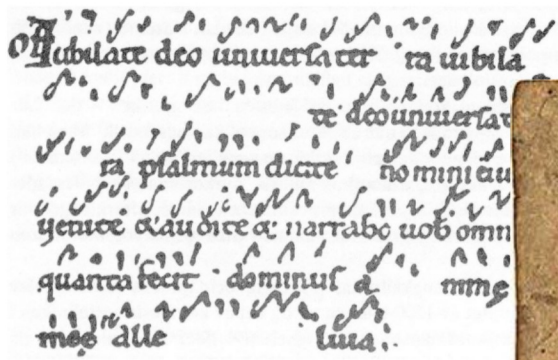 Iubilate deo uniuersa ter ra iubila
te deo uniuersa t
ra psalmum dicite nomini eiu
uenite & audite & narrabo uob omn
quanta fecit dominus a nimę
męę alle luia.